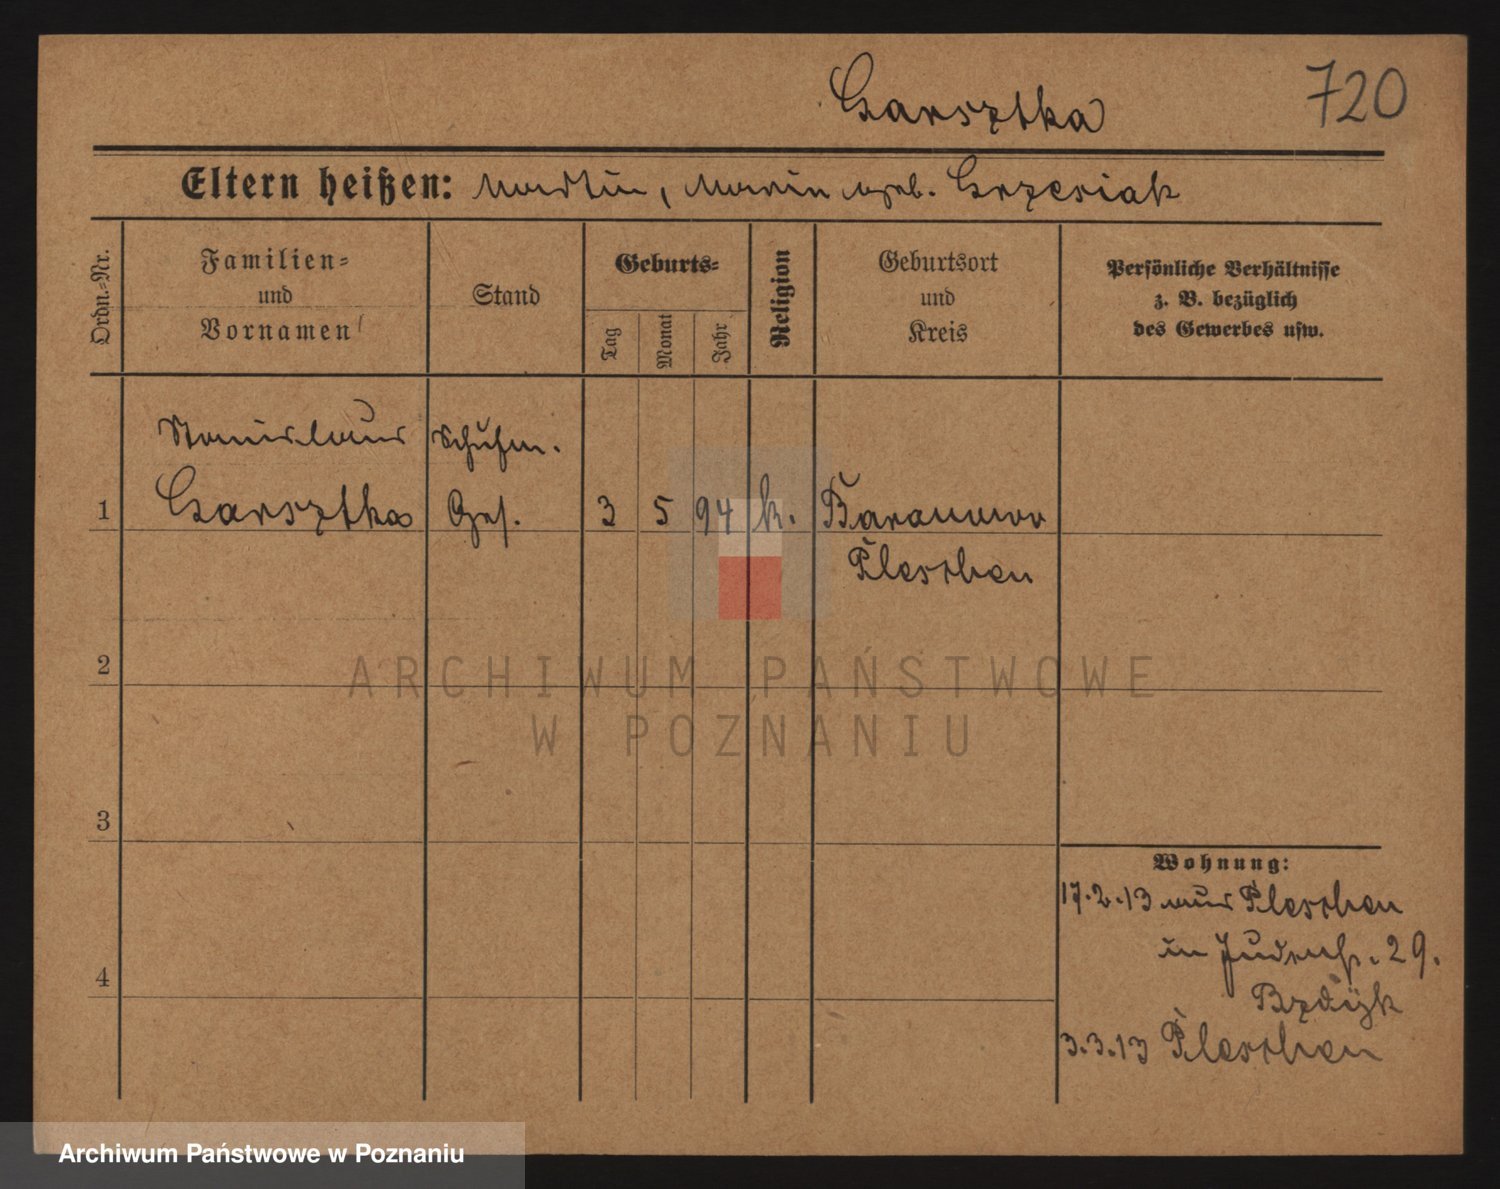 Garsztka
720
Eltern heißen: Martin, Marie geb. Grzesiak
Ordn.-Nr.
Familien-
und
Vornamen
Stand
Geburts-
Tag
Monat
Jahr
Religion
Geburtsort
und
Kreis
Persönliche Verhältnisse
z. B. bezüglich
des Gewerbes usw.
Stanislaus
Schuhm.
1
Garsztka
Ges.
3
5
94
k.
Baranowo
Pleschen
2
3
4
Wohnung:
17.2.13 aus Pleschen
in Judenstr. 29.
3.3.13 Pleschen
ARCHIWUM PAŃSTWOWE
W POZNANIU
Archiwum Państwowe w Poznaniu